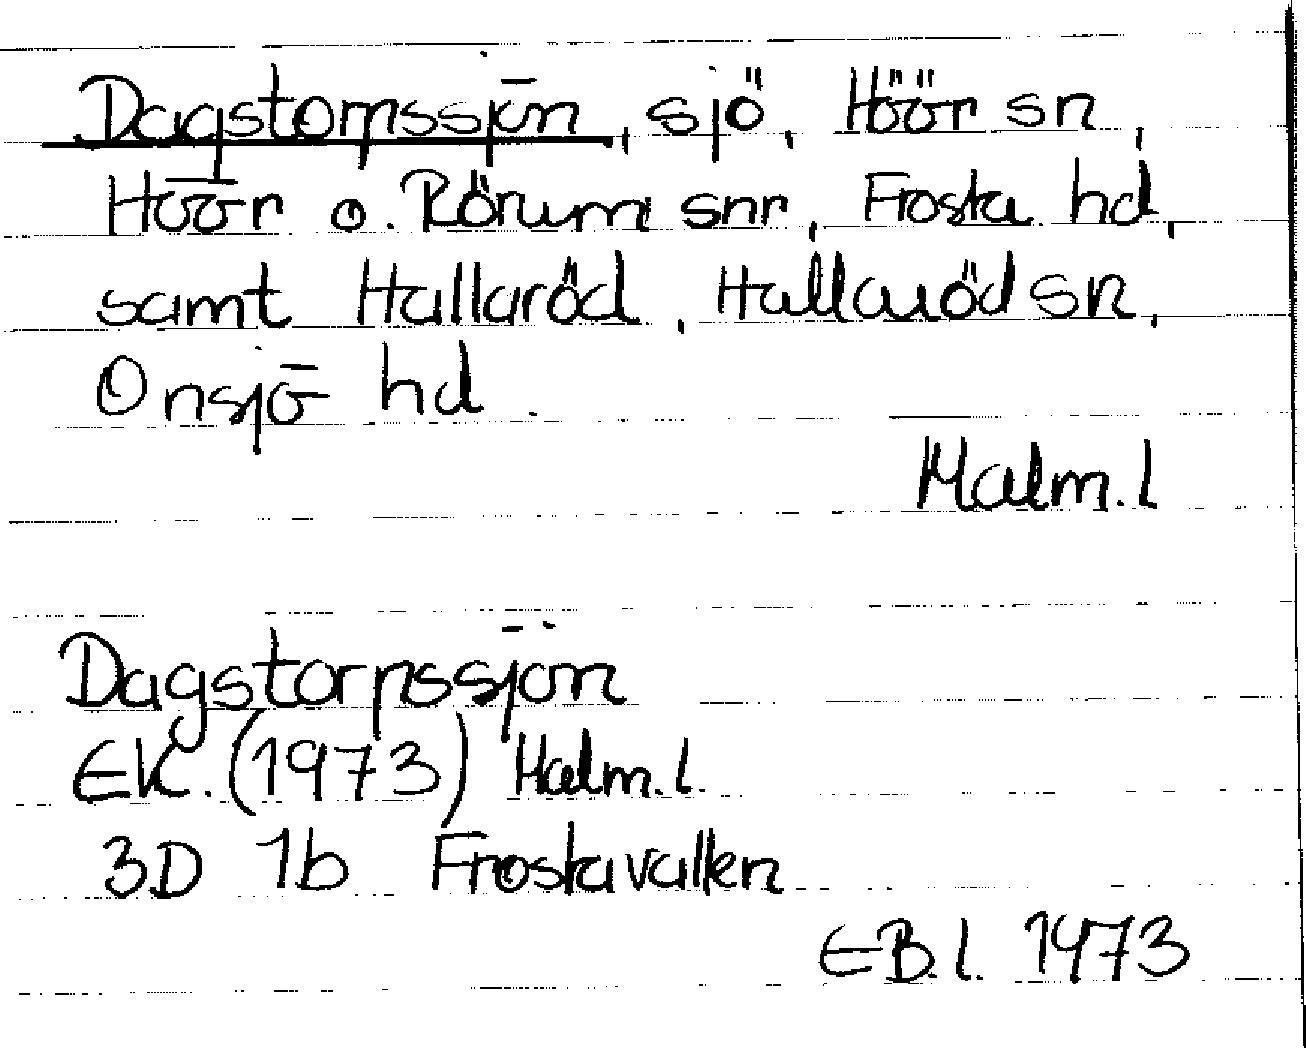 Dagstorpssjön, sjö, Höör sn,
Höör o. Rörum snr, Frosta hd,
samt Hallaröd, Hallaröd sn,
Onsjö hd.
Malm. l
Dagstorpssjön
EK. (1973) Malm. l.
3D 1b Frostavallen
EB. l. 1973